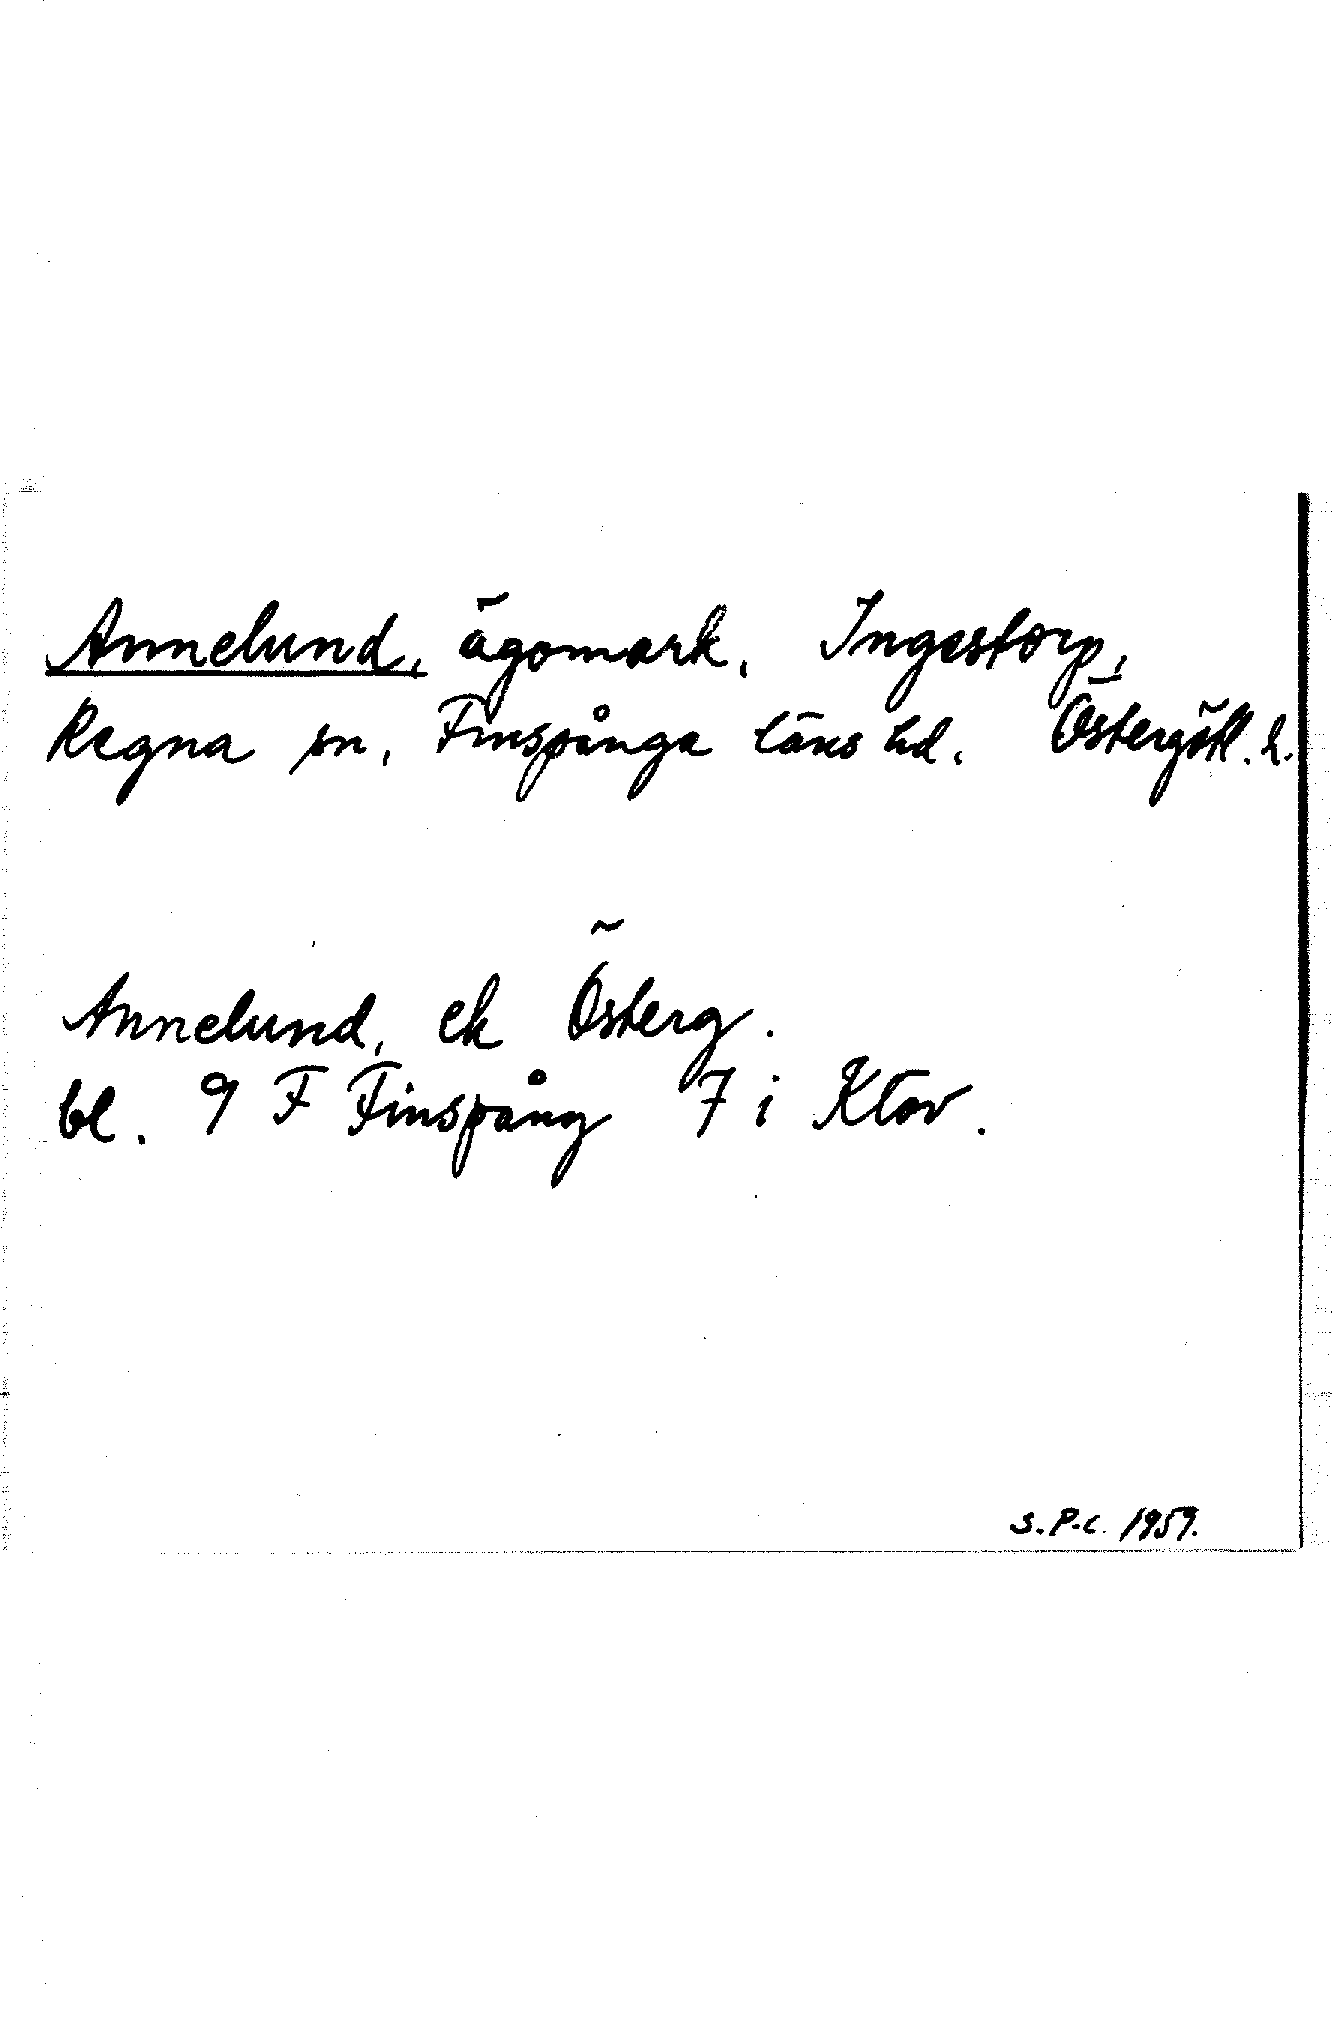 Annelund, ägomark, Ingestorp,
Regna sn, Finspånga läns hd. Östergötl. l.
Annelund, ek Österg.
bl. 9 F Finspång 7 i Ktav.
S.P-c. 1959.